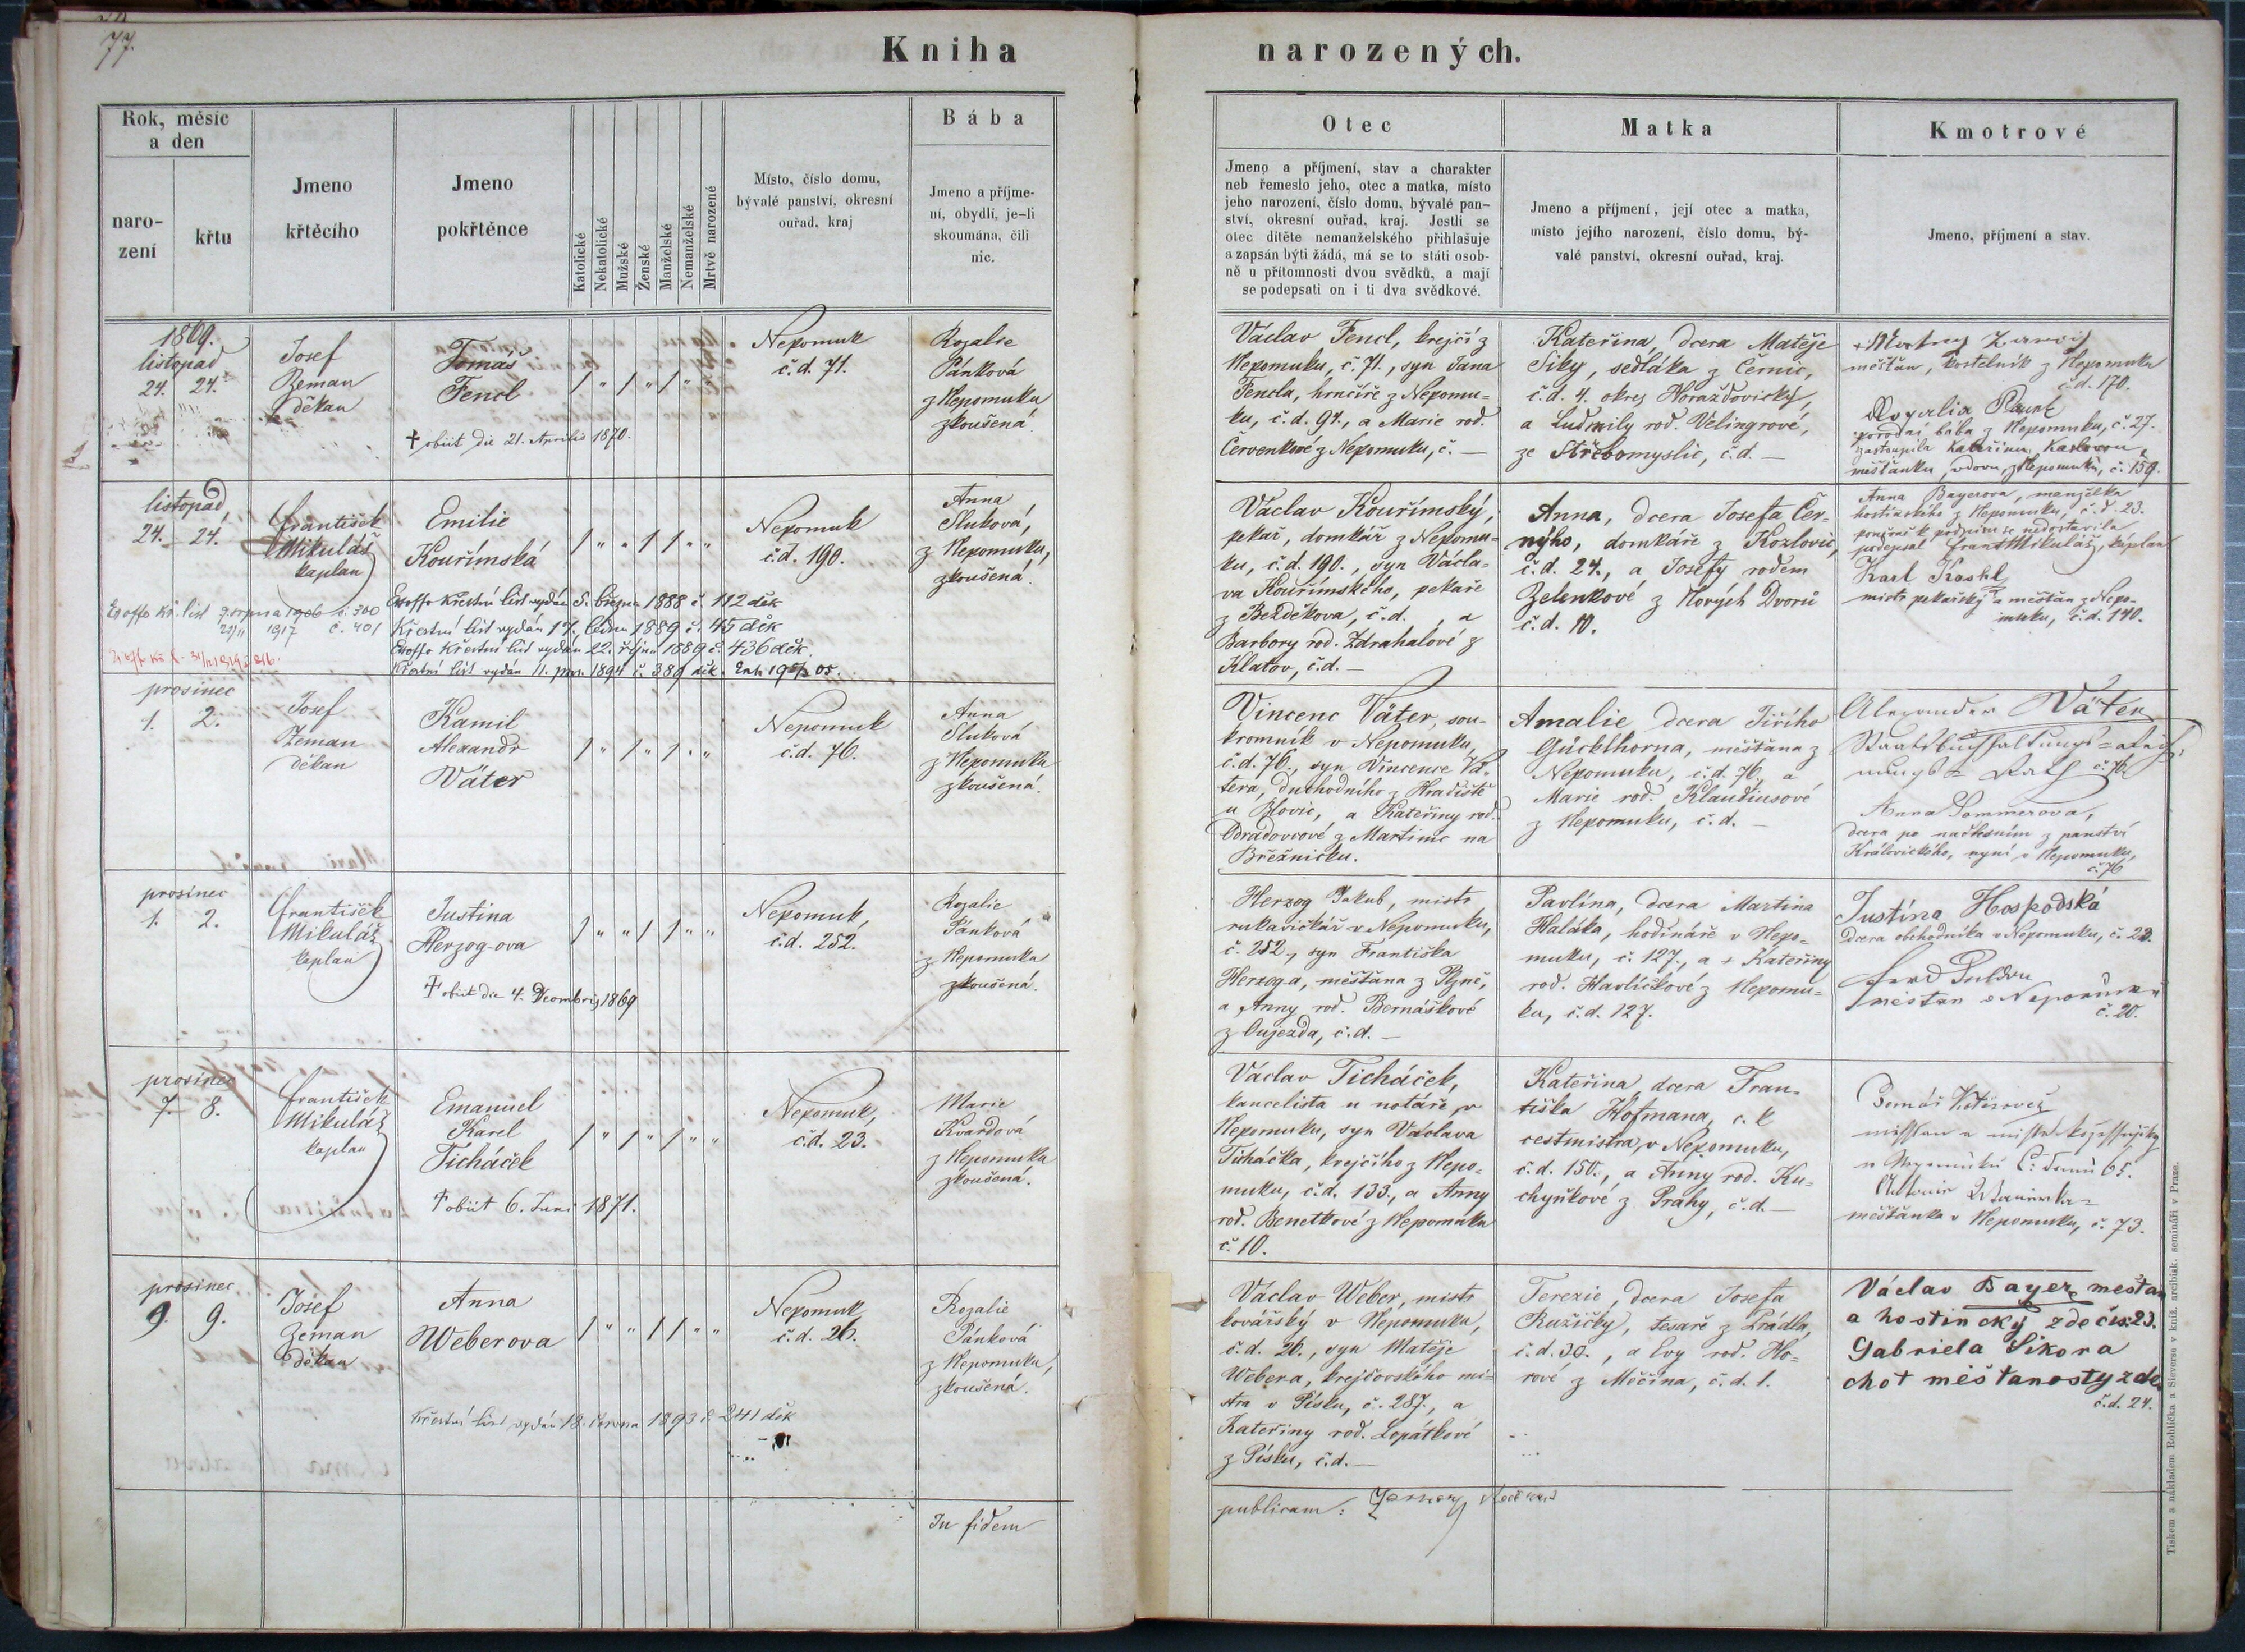 77.
Kniha narozených.
Rok, měsíc
a den
naro-
zení
křtu
Jmeno
křtěcího
Jmeno
pokřtěnce
Katolické
Nekatolické
Mužské
Ženské
Manželské
Nemanželské
Mrtvě narozené
Místo, číslo domu,
bývalé panství, okresní
ouřad, kraj
Bába
Jmeno a příjme-
ní, obydlí, je-li
skoumána, čili
nic.
Otec
Jmeno a příjmení, stav a charakter
neb řemeslo jeho, otec a matka, místo
jeho narození, číslo domu, bývalé pan-
ství, okresní ouřad, kraj. Jestli se
otec dítěte nemanželského přihlašuje
a zapsán býti žádá, má se to státi osob-
ně u přítomnosti dvou svědků, a mají
se podepsati on i ti dva svědkové.
Matka
Jmeno a příjmení, její otec a matka,
místo jejího narození, číslo domu, bý-
valé panství, okresní ouřad, kraj.
Kmotrové
Jmeno, příjmení a stav.
1869.
listopad
24. 24.
Josef
Zeman
děkan
Tomáš
Fencl
† obiit die 21. Aprilis 1870.
Nepomuk
č.d. 71.
Rozalie
Pánková
z Nepomuku
zkoušená
Václav Fencl, krejčí z
Nepomuku, č. 71., syn Jana
Fencla, hrnčíře z Nepomu-
ku, č.d. 94., a Marie rod.
Červenkové z Nepomuku, č. —
Kateřina, dcera Matěje
Siky, sedláka z Černic,
č.d. 4. okres Horažďovický,
a Ludmily rod. Velingrové,
ze Střebomyslic, č.d. —
měšťan, kostelník z Nepomuku
č.d. 170.
porodní bába z Nepomuku, č. 27.
zastoupila Kateřinu
měšťanku, vdovu, z Nepomuku, č. 159.
listopad,
24. 24.
František
Mikuláš
kaplan
Emilie
Kouřímská
Exoffo křestní list vydán 5. března 1888 č. 112 děk
Exoffo kř. list 7. srpna 1906 č. 300
1917 č. 401
Křestní list vydán 17. ledna 1889 č. 45 děk
Exoffo křestní list vydán 22. října 1889 č. 436 děk.
Křestní list vydán 11. pros. 1894 č. 389 děk.
Nepomuk
č.d. 190.
Anna
Sluková,
z Nepomuku,
zkoušená.
Václav Kouřímský,
pekař, domkář z Nepomu-
ku, č.d. 190., syn Václa-
va Kouřímského, pekaře
z Bezděkova, č.d. , a
Barbory rod. Zdrahalové z
Klatov, č.d. —
Anna, dcera Josefa Čer-
ného, domkáře z Kozlovic,
č.d. 24., a Josefy rodem
Zelenkové z Nových Dvorů
č.d. 10.
Anna Bayerova, manželka
hostinského z Nepomuku, č.d. 23.
podepsal Frant Mikuláš, kaplan
Karl Kraskl
mistr pekařský a měšťan z Nepo-
muku, č.d. 140.
prosinec
1. 2.
Josef
Zeman
děkan
Kamil
Alexandr
Väter
Nepomuk
č.d. 76.
Anna
Sluková
z Nepomuku
zkoušená.
Vincenc Väter, sou-
kromník v Nepomuku,
č.d. 76., syn Vincence Vä-
tera, důchodního z Hradiště
u Blovic, a Kateřiny rod.
Odradovcové z Martinic na
Březnicku.
Amalie dcera Jiřího
Gücklhorna, měšťana z
Nepomuku, č.d. 76., a
Marie rod. Klaudiusové
z Nepomuku, č.d. —
Alexander Väter
č. 76.
Anna Sommerova,
Královického, nyní v Nepomuku,
č. 76
prosinec
1. 2.
František
Mikuláš
kaplan
Justina
Herzog-ova
† obiit die 4. Decembris 1869
Nepomuk,
č.d. 252.
Rozalie
Pánková
z Nepomuku
zkoušená.
Herzog Jakub, mistr
rukavičkář v Nepomuku,
č. 252., syn Františka
Herzoga, měšťana z Plzně,
a Anny rod. Bernáškové
z Oujezda, č.d. —
Pavlína, dcera Martina
Haláka, hodináře v Nepo-
muku, č. 127., a + Kateřiny
rod. Havlíčkové z Nepomu-
ku, č.d. 127.
Justína Hospodská
Dcera obchodníka v Nepomuku, č. 28.
měštan v Nepomuku
č. 20.
prosinec
7. 8.
František
Mikuláš
kaplan
Emanuel
Karel
Ticháček
† obiit 6. Juni 1871.
Nepomuk,
č.d. 23.
Marie
Kvardová
z Nepomuku
zkoušená.
Václav Ticháček,
kancelista u notáře v
Nepomuku, syn Václava
Ticháčka, krejčího z Nepo-
muku, č.d. 133., a Anny
rod. Benetkové z Nepomuku
č. 10.
Kateřina, dcera Fran-
tiška Hofmana, c. k
cestmistra, v Nepomuku,
č.d. 150., a Anny rod. Ku-
chyňkové z Prahy, č.d. —
měšťanka v Nepomuku, č. 73.
prosinec
9. 9.
Josef
Zeman
děkan
Anna
Weberova
Křestní list vydán 18. června 1893 č. 241 děk
Nepomuk
č.d. 26.
Rozalie
Pánková
z Nepomuku,
zkoušená.
Václav Weber, mistr
kovářský v Nepomuku,
č.d. 26., syn Matěje
Webera, krejčovského mi-
stra v Písku, č. 287., a
Kateřiny rod. Lopátkové
z Písku, č.d. —
Terezie, dcera Josefa
Růžičky, tesaře z Prádla,
č.d. 30., a Evy rod. Ho-
rové z Měčína, č.d. 1.
Václav Bayer, mestan
a hostincký zde čis: 23.
Gabriela Sikora
chot měštanosty zde
č.d. 24.
In fidem publicam: Zeman děkan
Tiskem a nákladem Rohlíčka a Sieversa v kníž. arcibisk. semináři v Praze.